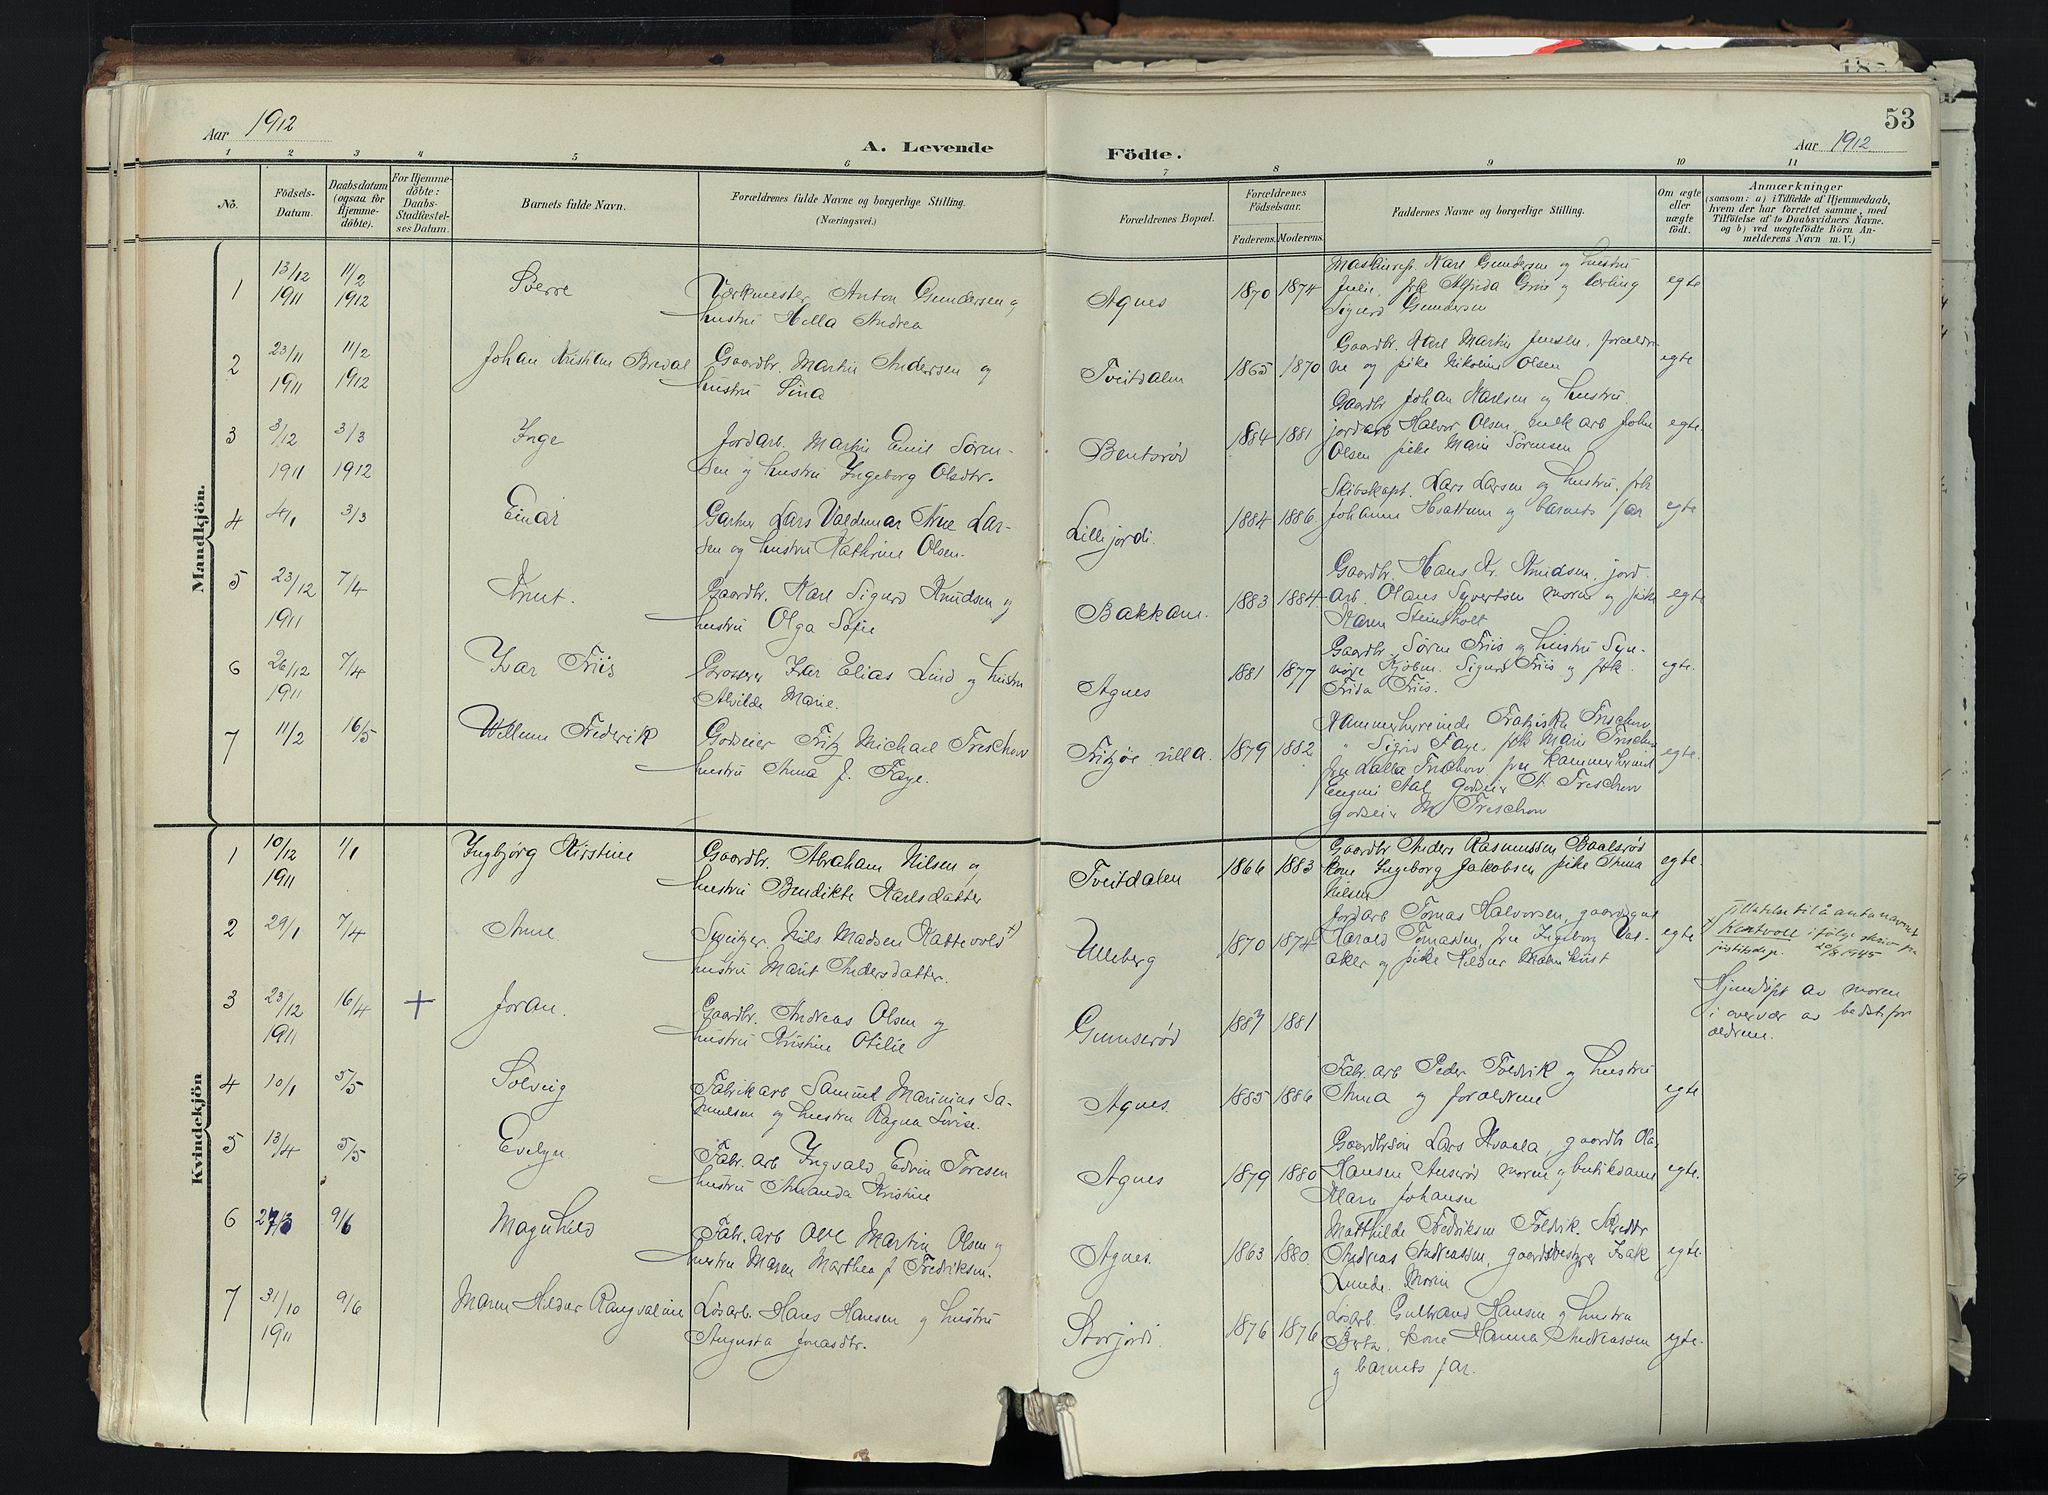 53
Aar 1912
A. Levende Födte.
Aar 1912
1 2 3 4 5 6 7 8 9 10 11
No.
Födsels-Datum.
Daabsdatum (ogsaa for Hjemmedöbte).
For Hjemmedöbte: Daabs-Stadfæstelses Datum.
Barnets fulde Navn.
Forældrenes fulde Navne og borgerlige Stilling.
(Næringsvei.)
Forældrenes Bopæl.
Forældrenes Födselsaar.
Faderens. Moderens.
Faddernes Navne og borgerlige Stilling.
Om ægte eller uægte födt.
Anmærkninger
(saasom: a) i Tilfælde af Hjemmedaab,
hvem der har forrettet samme, med
Tilföielse af to Daabsvidners Navne.
og b) ved uægtefödte Börn Anmelderens Navn m. V.)
Mandkjön.
1 13/12 1911 11/2 1912 Sverre
Værkmester Anton Gundersen og
hustru Hilla Andrea
Agnes 1870 1874
Karl Gundersen og hustru
Julie, frk Alfida
Sigurd Gundersen
egte
2 23/11 1911 11/2 1912 Johan Kristian Bredal
Gaardbr. Martin Andersen og
hustru Sina
Tveitdalen 1865 1870
Gaardbr. Karl Martin Jensen, foreldre
ne og pike Nikoline Olsen
egte
3 3/12 1911 3/3 1912 Inge
Jordarb. Martin Emil Sören-
sen og hustru Ingeborg Olsdtr.
Bentsrød 1884 1881
Gaardbr Johan Karlsen og hustru.
jordarb Halvor Olsen, arb John
Olsen pike Marie Sørensen
egte
4 4/1 3/3 Einar
Gartner Lars Valdemar Arne Lar-
sen og hustru Kathrine Olsen.
Lillejordi. 1884 1886
Skibskapt. Lars Larsen og hustru, frk
Johanne og barnets far
egte
5 23/12 1911 7/4 Knut.
Gaardbr. Karl Sigurd Knudsen og
hustru Olga Sofie
Bakkane. 1883 1884
Gaardbr. Hans Kr. Knudsen, jord-
arb. Olaus Syvertsen moren og pike
Karen Steinsholt
egte
6 26/12 1911 7/4 Ivar Friis
Grosserer Ivar Elias Lind og hustru
Alvilde Marie.
Agnes 1881 1877
Gaardbr. Sørne Friis og hustru Syn-
nøve Kjøbm. Sigurd Friis og frk.
Frida Friis.
egte.
7 11/2 16/5 Willum Frederik
Godseier Fritz Michael Treschow
hustru Anna f. Faye.
Fritzøe villa. 1879 1882
Kammerherreinde Treschow
" Sigrid Faye, frk Marie Treschow
fru Lalla Treschow fru Kammerherreinde
Aal godseier Treschow
godseier M Treschow
egte.
Kvindekjön
1 10/12 1911 1/1 Ingbjörg Kirstine
Gaardbr. Abraham Nilsen og
hustru Bendikte Karlsdatter
Tveitdalen 1866 1883
Gaardbr Anders Rasmussen Baalsrød
kone Ingeborg Jakobsen pike Anna
Nilsen
egte
2 29/1 7/4 Anne
Sveitzer Nils Madsen Kattevold +)
hustru Marit Andersdatter.
Ulleberg 1870 1874
Jordarb Tomas Halvorsen, gaardsgut
Harald Tomassen, fru Ingeborg Vas-
aker og pike Hildur Malmkvist
egte
+) Tillatelse til å anta navnet
Kentvoll i følge skriv fra
justitsdep. 20/8 1945
3 23/12 1911 16/4 + Joran.
Gaardbr. Andreas Olsen og
hustru Kristine Otilie
Gumserød 1883 1881
Hjemdøpt av moren
i overvær av bedstefor
ældrene.
4 10/1 5/5 Solveig
Fabrikarb Samuel Marinius Sa-
muelsen og hustru Ragna Lovise.
Agnes 1885 1886
Fabr. arb Peder Foldvik og hustru
Anna og forældrene
egte
5 13/4 5/5 Evelyn
Fabr. arb Ingvald Edvin Toresen
hustru Amanda Kristine
Agnes 1879 1880
Gaardbrsøn Lars Kvaela, gaardbr Ola
Hansen Auserød moren og butikdame
Marie Johansen
egte.
6 9/6 Magnhild
Fabr. arb Ole Martin Olsen og
hustru Maren Marthea f Fredriksen.
Agnes. 1863 1880
Matthilde Fredriksen Foldvik Skrædder
Andreas Andreassen, gaardsbestyrer Isak
Lunde. Moren
egte.
7 31/10 1911 9/6 Maren Hildur Rangvaldine
Løsarb. Hans Hansen og hustru
Augusta Jonasdtr.
Storjordi. 1876 1876
Løsarb. Gulbrand Hansen og hustru
Berta, kone Hanna Andreassen
og barnets far.
egte.